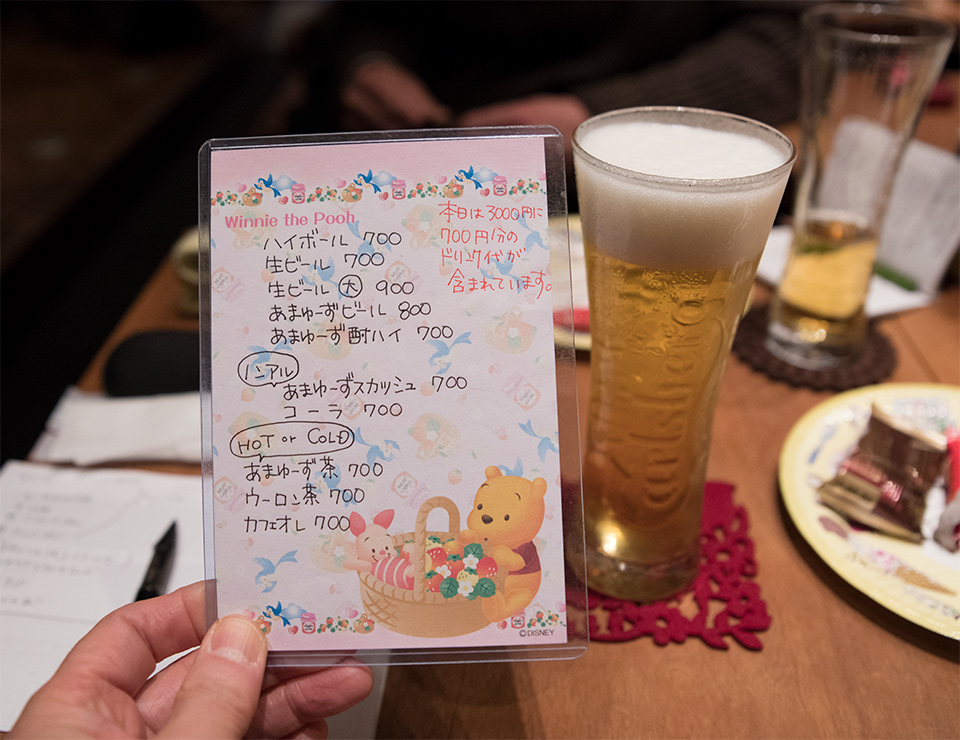 Winnie the Pooh
ハイボール 700
生ビール 700
生ビール 大 900
あまゅーずビール 800
あまゅーず酎ハイ 700
ノンアル
あまゅーずスカッシュ 700
コーラ 700
HOT or COLD
あまゅーず茶 700
ウーロン茶 700
カフェオレ 700
本日は3000円に
700円分の
ドリンク代が
含まれています。
©DISNEY
Carlsberg